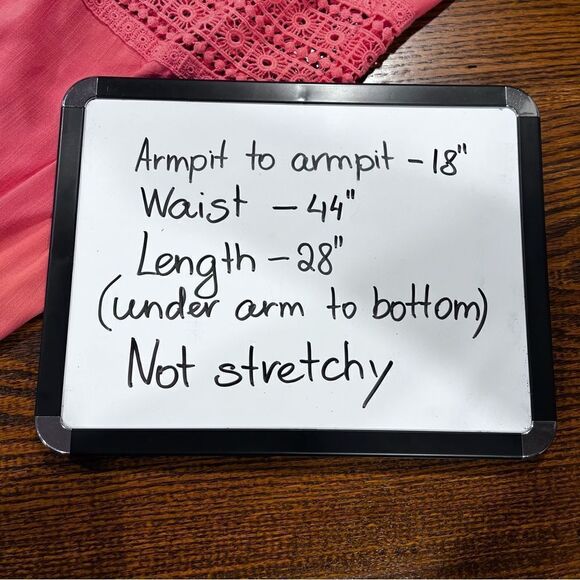 Armpit to armpit - 18"
Waist - 44"
Length - 28"
(under arm to bottom)
Not stretchy